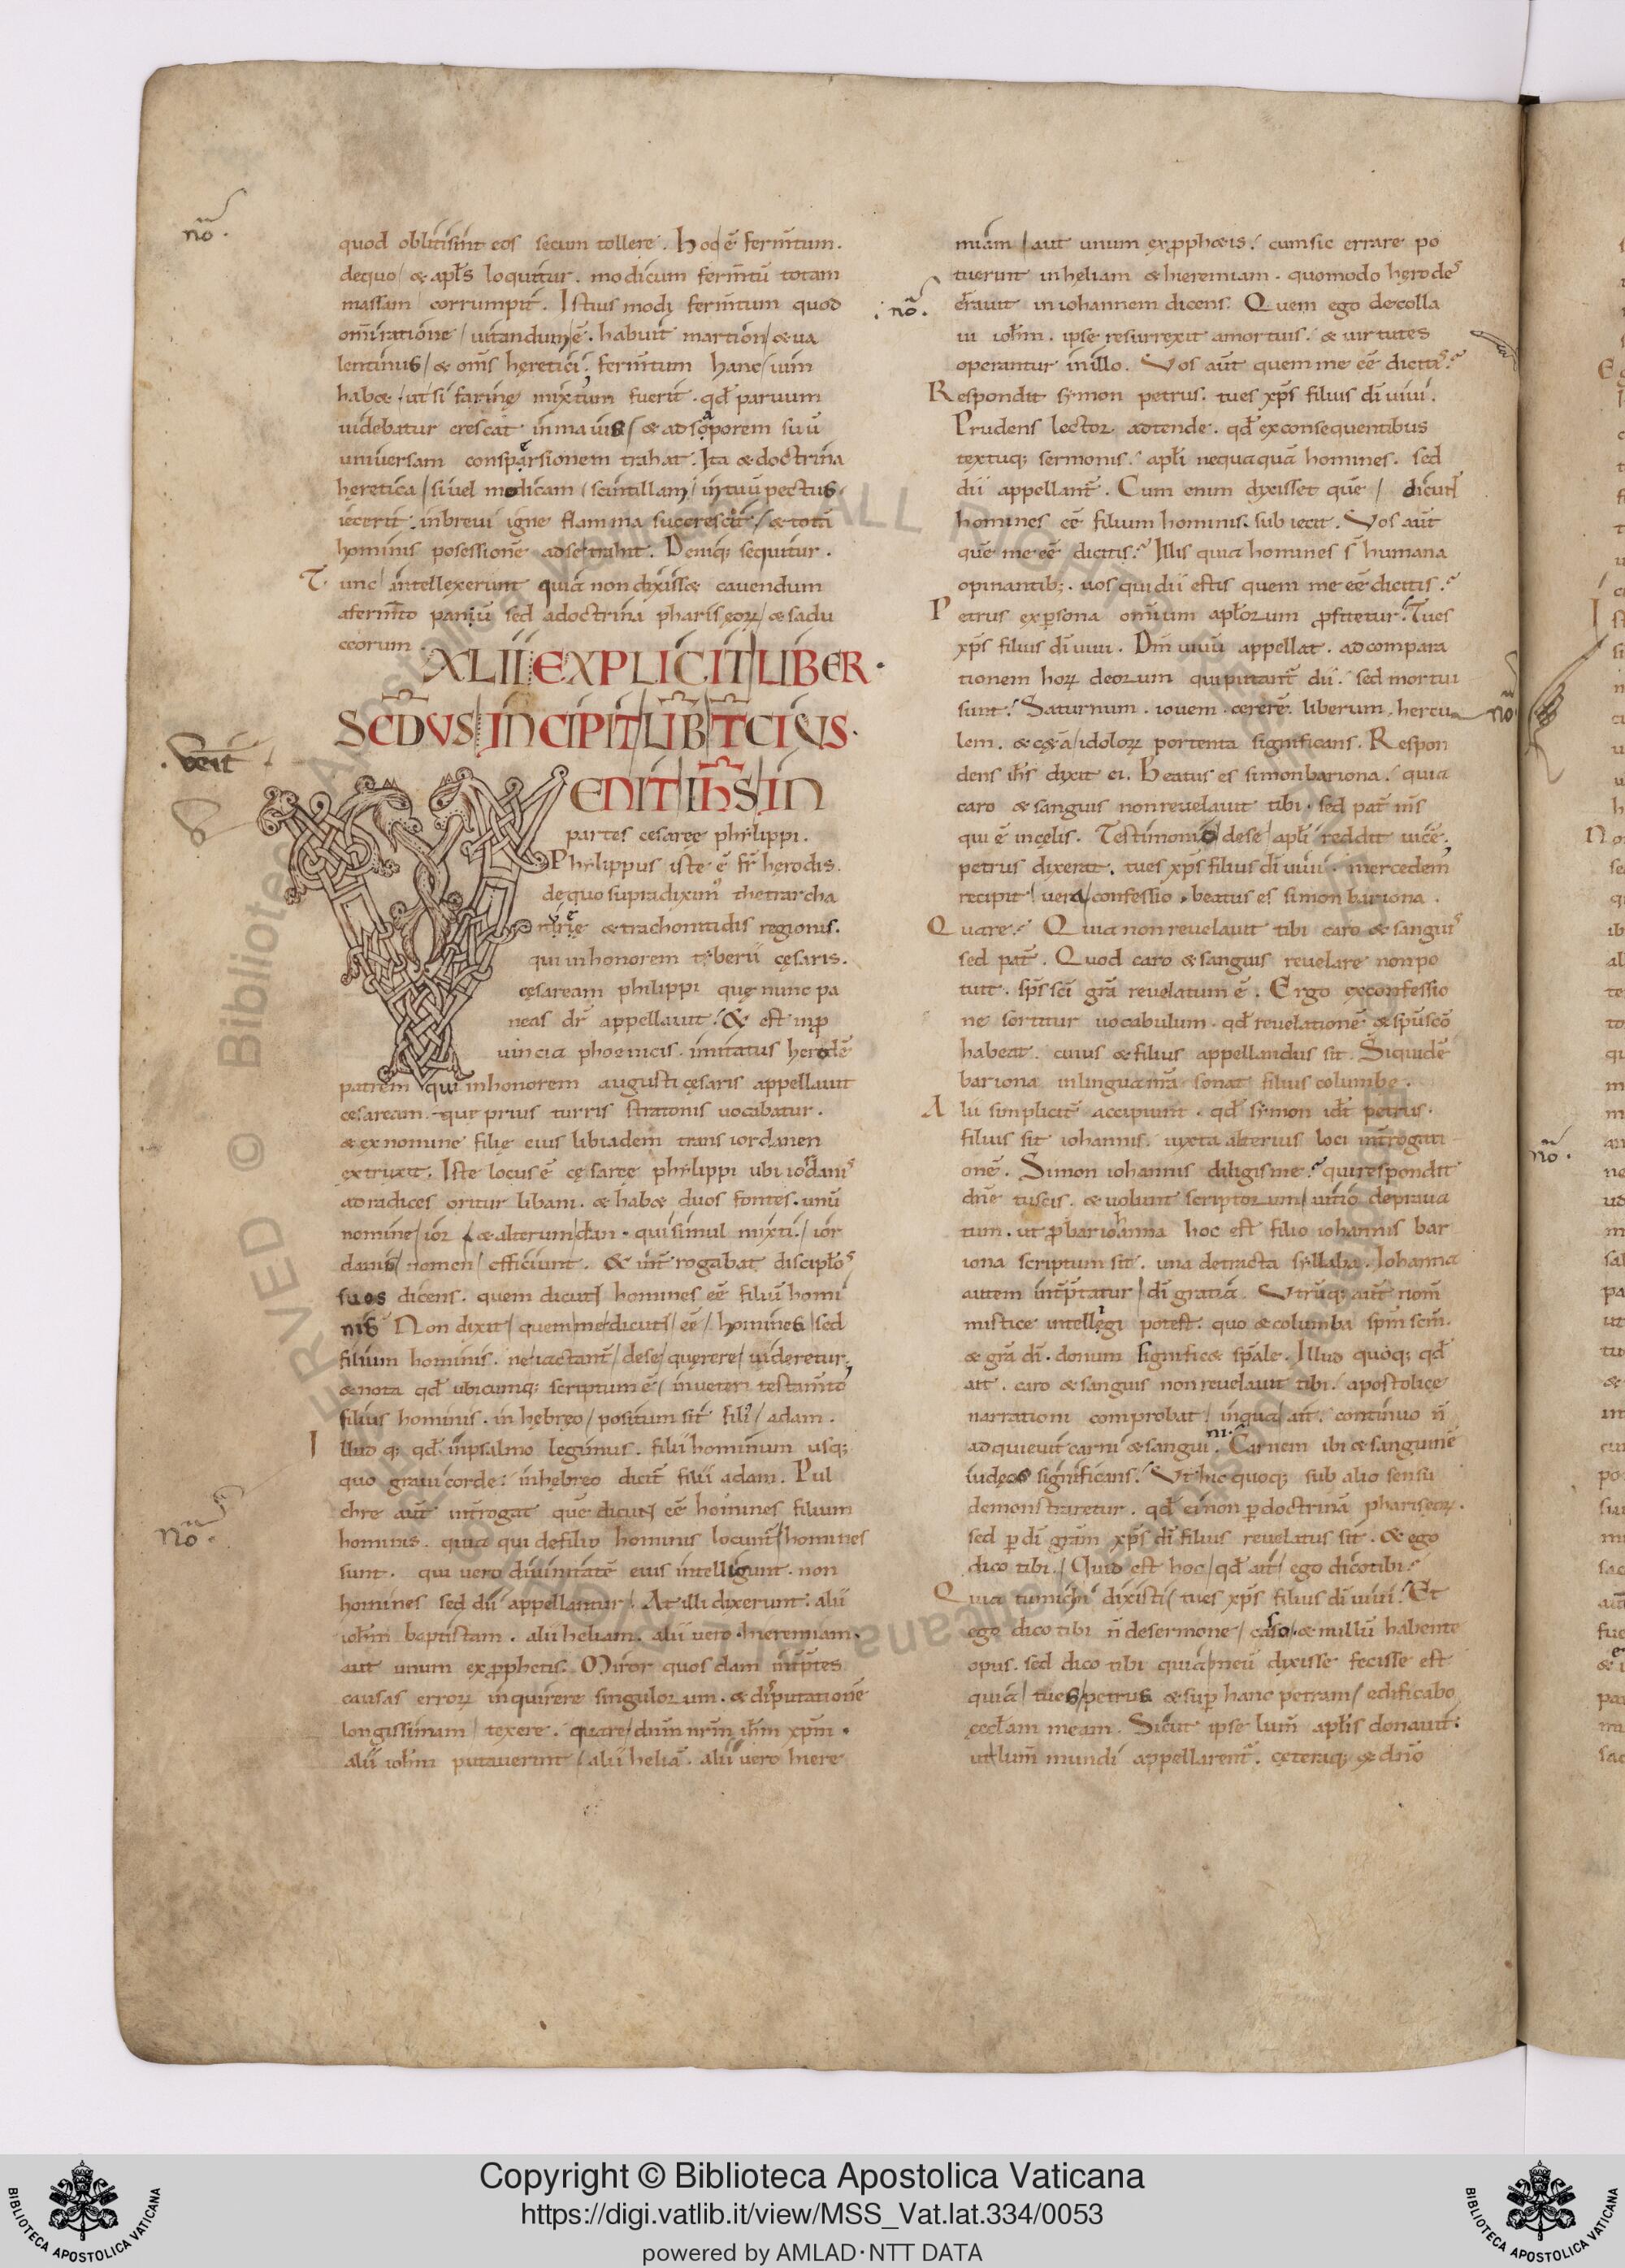 quod obliti sint eos secum tollere. hoc ē ferm̄tum.
dequo & apl̄s loquitur. modicum ferm̄tū totam
massam corrumpit. Istius modi ferm̄tum quod
om̄i ratione uitandum ē. habuit martion & ua
lentinus & om̄s heretici. ferm̄tum hanc uim
hab& ut si farinę mixtum fuerit. qđ paruum
uidebatur crescat in maius & ad saporem suū
uniuersam conspersionem trahat. Ita & doctrina
heretica si uel modicam scintillam in tuū pectus
iecerit. in breui igne flamma succrescit & totā
hominis posessionē ad se trahit. Deniq; sequitur.
Tunc intellexerunt quia non dixiss& cauendum
a ferm̄to paniū sed a doctrina phariseoꝝ & sadu
ceorum.
XLII EXPLICIT LIBER.
SECD̄VS INCIPIT LIB̄ T̄CIUS.
VENIT IH̄S IN
partes cesaree phylippi.
Phylippus iste ē fr̄ herodis.
de quo supra diximꝰ thetrarcha
& trachonitidis regionis.
qui in honorem tyberii cęsaris.
cęsaream philippi quę nunc pa
neas dr̄ appellauit. & est in ꝓ
uincia phoenicis. imitatus herodē
patrem qui in honorem augusti cęsaris appellauit
cesaream. que prius turris stratonis uocabatur.
& ex nomine filię eius libiadem trans iordanen
extruxit. Iste locus ē cę sareę phylippi ubi iordanis
ad radices oritur libani. & hab& duos fontes. unū
nomine ior & alterum dan. qui simul mixti ior
danis nomen efficiunt. & int̄rogabat discipl̄os
suos dicens. quem dicunt homines eē filiū homi
nis Non dixit quem me dicunt eē homines sed
filium hominis. ne iactant̄ de se querere uideretur;
& nota qđ ubicumq; scriptum ē in ueteri testam̄to
filius hominis. in hębręo positum sit filiꝰ adam.
Illud q; qđ in psalmo legimus. filii hominum usq;
quo graui corde. in hebreo dicit̄ filii adam. Pul
chre aut̄ int̄rogat quē dicunt eē homines filium
hominis. quia qui de filio hominis locunt̄ homines
sunt. qui uero diuinitatē eius intelligunt. non
homines sed dii appellantur. At illi dixerunt. alii
ioh̄m baptistam. alii heliam. alii uero hieremiam.
aut unum ex ꝓphetis. Miror quos dam int̄p̄tes
causas erroꝝ inquirere singulorum. & disputationē
longissimam texere. quare dn̄m nr̄m ih̄m xp̄m.
alii ioh̄m putauerint alii heliā. alii uero hiere
miam aut unum ex ꝓph&is. cum sic errare po
tuerint in heliam & hieremiam. quomodo herodes
errauit in iohannem dicens. Quem ego decolla
ui ioh̄m. ipse resurrexit a mortuis. & uirtutes
operantur in illo. Vos aut̄ quem me eē dicitis?
Respondit symon petrus. tu es xp̄s filius dī uiui.
Prudens lector adtende. qđ ex consequentibus
textuq; sermonis. apl̄i nequaquā homines. sed
dii appellant̄. Cum enim dixisset quē dicunt
homines eē filium hominis. sub iecit. Vos aut̄
quē me eē dicitis? Illis quia homines s̄ humana
opinantib;. uos qui dii estis quem me eē dicitis?
Petrus ex ꝑsona omnium apl̄orum ꝓfitetur. Tu es
xp̄s filius dī uiui. Dm̄ uiuū appellat. ad compara
tionem hoꝝ deorum qui putant̄ dii. sed mortui
sunt. Saturnum. iouem. cererē. liberum. hercu
lem. & c&ā idoloꝝ portenta significans. Respon
dens ih̄s dixit ei. Beatus es simon bariona. quia
caro & sanguis non reuelauit tibi. sed pat̄ m̄s
qui ē in cęlis. Testimonio de se apl̄i reddit uicē;
petrus dixerat. tu es xp̄s filius dī uiui. mercedem
recipit uera confessio. beatus es simon bariona.
Quare? Quia non reuelauit tibi caro & sanguis
sed pat̄. Quod caro & sanguis reuelare non po
tuit. sp̄s sc̄i gr̄a reuelatum ē. Ergo ex confessio
ne sortitur uocabulum. qđ reuelationē & sp̄u sc̄o
habeat. cuius & filius appellandus sit. Siquidē
bariona in lingua nr̄a sonat filius columbe.
Alii simplicit̄ accipiunt. qđ symon idt̄ petrus.
filius sit iohannis. iuxta alterius loci int̄rogati
onē. Simon iohannis diligis me? qui respondit
dn̄e tu scis. & uolunt scriptorum uitio deprauа
tum. ut ꝓ bariohanna hoc est filio iohannis bar
iona scriptum sit. una detracta syllaba. Iohanna
autem int̄p̄tatur dī gratia. Vtrūq; aut̄ nom̄
mistice intellegi potest. quo & columba sp̄m sc̄m.
& gr̄a dī. donum significet sp̄ale. Illud quoq; qđ
ait. caro & sanguis non reuelauit tibi. apostolice
narrationi comprobat in qua ait. continuo n̄
adquieui carni & sanguini. Carnem ibi & sanguinē
iudęos significans. Vt hic quoq; sub alio sensu
demonstraretur. qđ ei non ꝑ doctrinā phariseoꝝ.
sed ꝑ dī gr̄am xp̄s dī filius reuelatus sit. & ego
dico tibi. Quid est hoc qđ ait ego dico tibi?
Quia tu mihi dixisti tu es xp̄s filius dī uiui. Et
ego dico tibi n̄ de sermone casso & nullū habente
opus. sed dico tibi quia meū dixisse fecisse est
quia tu es petrus & suꝑ hanc petram edificabo
ęccl̄am meam. Sicut ipse lum̄ apl̄is donauit.
ut lum̄ mundi appellarent̄. ceteraq; ex dn̄o
nō.
nō.
nō.
nō.
nō.
Copyright © Biblioteca Apostolica Vaticana
https://digi.vatlib.it/view/MSS_Vat.lat.334/0053
powered by AMLAD·NTT DATA
BIBLIOTECA APOSTOLICA VATICANA
BIBLIOTECA APOSTOLICA VATICANA